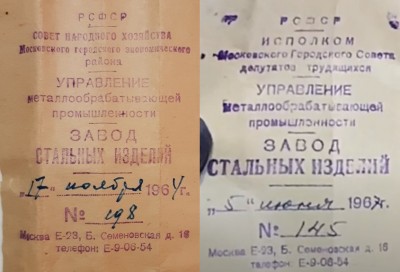 РСФСР
СОВЕТ НАРОДНОГО ХОЗЯЙСТВА
Московского городского экономического
района
УПРАВЛЕНИЕ
металлообрабатывающей
промышленности
ЗАВОД
СТАЛЬНЫХ ИЗДЕЛИЙ
„17" ноября 1964г.
№ 198
Москва Е-23, Б. Семеновская д. 16
телефон: Е-9-06-54
РСФСР
ИСПОЛКОМ
Московского Городского Совета
депутатов трудящихся
УПРАВЛЕНИЕ
металлообрабатывающей
промышленности
ЗАВОД
СТАЛЬНЫХ ИЗДЕЛИЙ
„5" июня 1967г.
№ 145
Москва Е-23, Б. Семеновская д. 16
телефон: Е-9-06-54